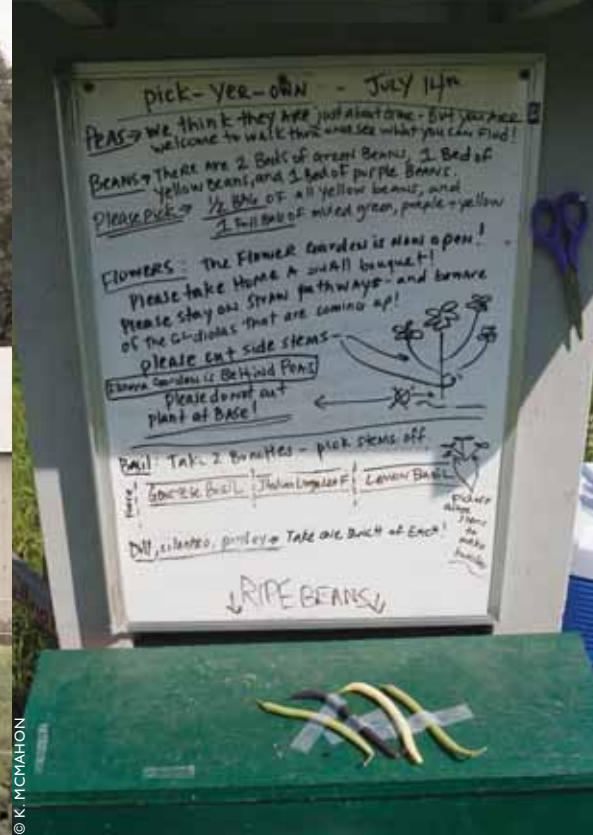 pick-yer-own - July 14th
Peas → We think they are just about done - But you are
welcome to walk thru and see what you can find!
Beans → There are 2 Beds of Green Beans, 1 Bed of
yellow Beans, and 1 Bed of purple Beans.
Please pick → 1/2 BAG of all yellow beans, and
1 Full BAG of mixed green, purple + yellow
Flowers: The Flower Garden is now open!
Please take home a small bouquet!
Please stay on straw pathways - and beware
of the Gladiolas that are coming up!
please cut side stems
Flower Garden is Behind Peas
Please do not cut
plant at BASE!
Basil: Take 2 Bunches - pick stems off
Genovese Basil Italian Large Leaf Lemon Basil
Dill, cilantro, parsley → Take one Bunch of Each!
stems
to
make
↓RIPE BEANS↓
© K. MCMAHON